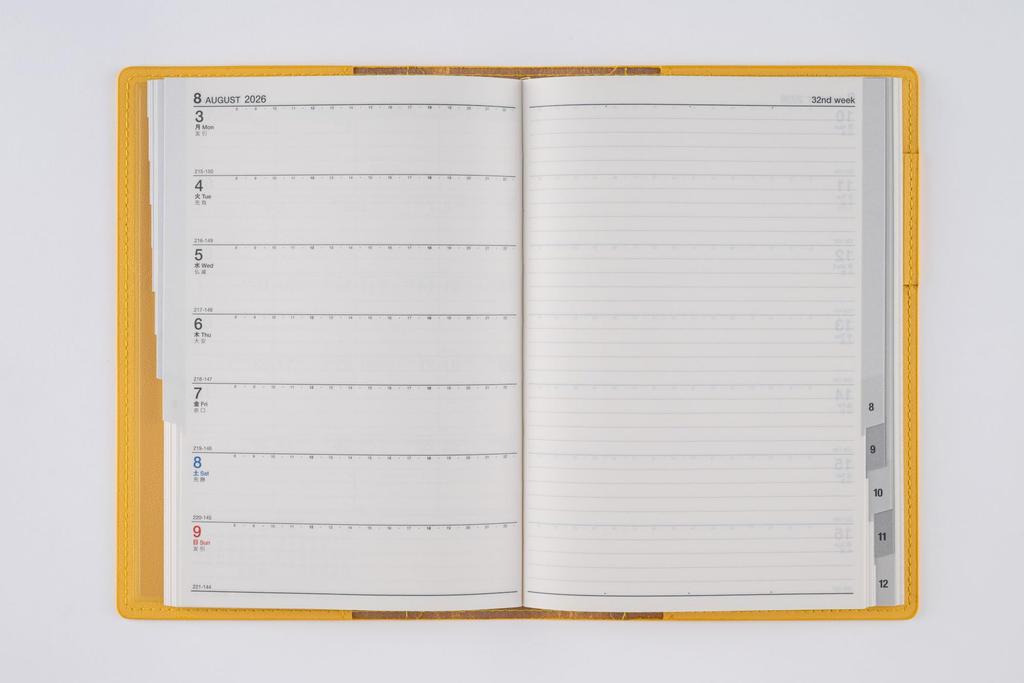 8 AUGUST 2026
3
月 Mon
友引
215-150
4
火 Tue
先負
216-149
5
水 Wed
仏滅
217-148
6
木 Thu
大安
218-147
7
金 Fri
赤口
219-146
8
土 Sat
先勝
220-145
9
日 Sun
友引
221-144
32nd week
8
9
10
11
12